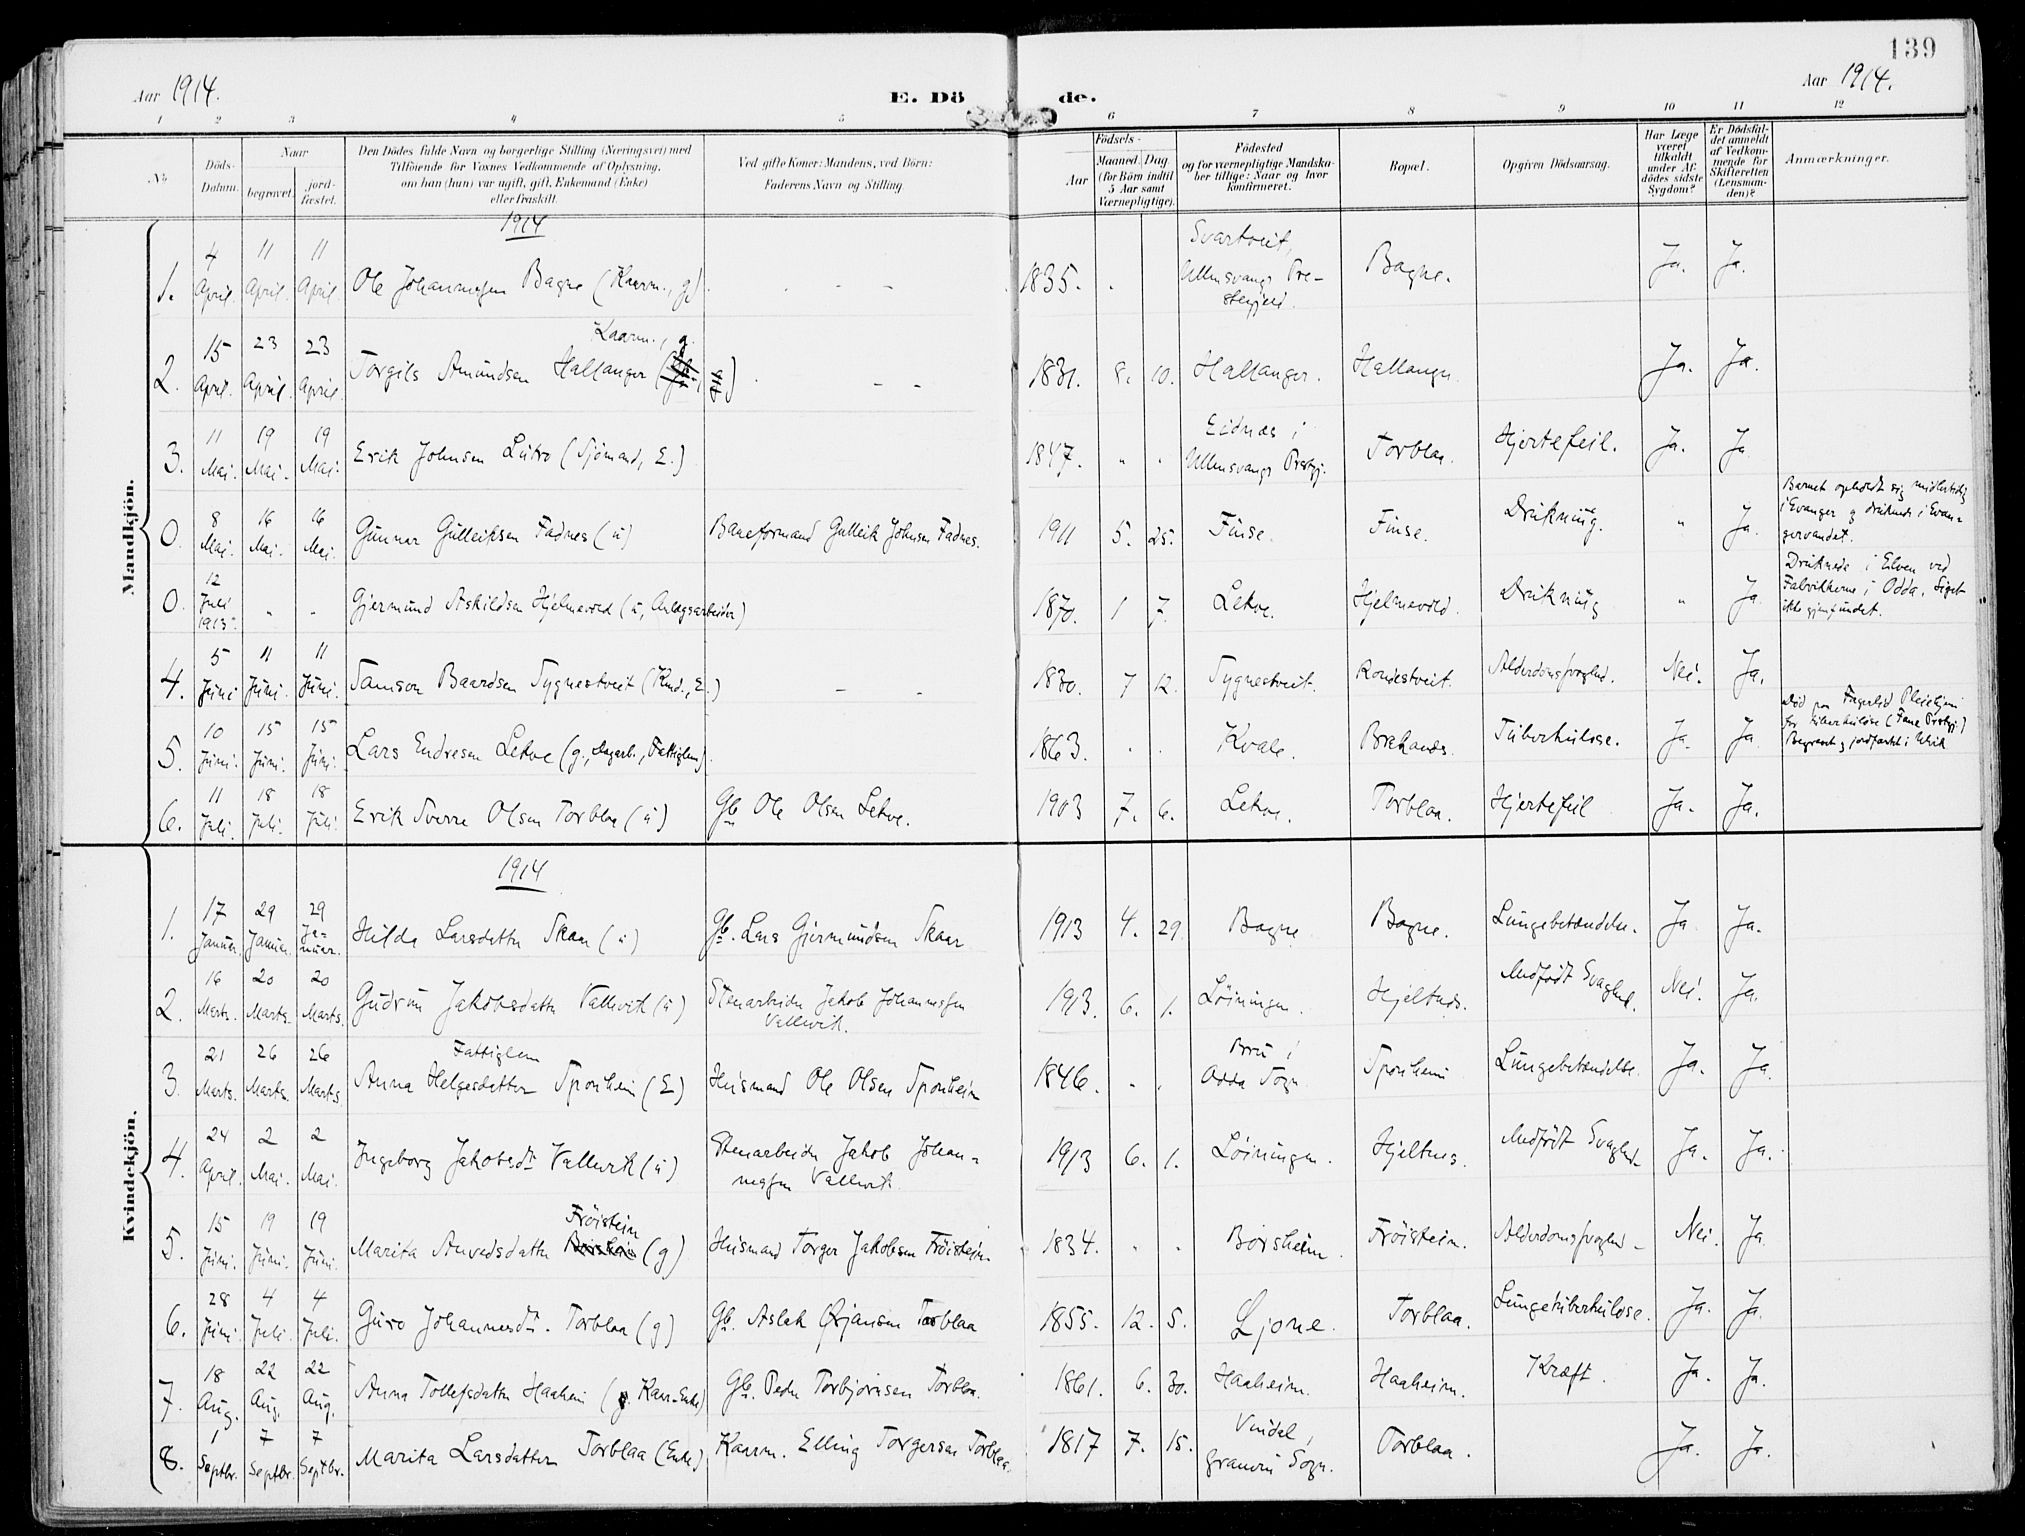 139
Aar 1914.
E. Dö de.
Aar 1914.
1 2 3 4 5 6 7 8 9 10 11 12
No
Döds-Datum.
Naar
begravet.
jord-fæstet.
Den Dödes fulde Navn og borgerlige Stilling (Næringsvei) med
Tilföiende for Voxnes Vedkommende af Oplysning,
om han (hun) var ugift, gift, Enkemand (Enke)
eller fraskilt.
Ved gifte Koner: Mandens, ved Börn:
Faderens Navn og Stilling.
Födsels-
Aar
Maaned. Dag.
(for Börn indtil
5 Aar samt
Værnepligtige).
Födested
og for værnepligtige Mandska-
ber tillige: Naar og hvor
konfirmeret.
Bopæl.
Opgiven Dödsaarsag.
Har Læge
været
tilkaldt
under Af-
dödes sidste
Sygdom?
Er Dödsfal-
det anmeldt
af Vedkom-
mende for
Skifteretten
(Lensman-
den)?
Anmærkninger.
Mandkjön.
1914
1. 4 April. 11 April. 11 April. Ole Johannessen Bagne (Kaarm., g) 1835. Svartveit, Ullensvangs Prestegjeld. Bagne. Ja. Ja.
2. 15 April. 23 April. 23 April. Torgils Amundsen Hallanger (Kaarm., g.) 1831. 8. 10. Hallanger. Hallanger. Ja. Ja.
3. 11 Mai. 19 Mai. 19 Mai. Erik Johnsen Lutro (Sjömand, E.) 1847. Eidnes i Ullensvangs Prestgj. Torblaa. Hjertefeil. Ja. Ja
0. 8 Mai. 16 Mai. 16 Mai. Gunnar Gulleiksen Fadnes (u) Baneformand Gulleik Johnsen Fadnes. 1911 5. 25. Finse. Finse. Drukning. " Ja. Barnet opholdt sig midlertidig i Evanger og druknede i Evangervandet.
0. 12 Juli 1913. " " Gjermund Askildsen Hjelmevold (u, Anlægsarbeider) 1870. 1 7. Lekve. Hjelmevold. Drukning " Ja. Druknede i Elven ved Fabrikkerne i Odda. Liget ikke gjenfundet.
4. 5 Juni 11 Juni. 11 Juni. Samson Baardsen Tygnestveit (Kmd., E.) 1830. 7 12. Tygnestveit. Rondestveit. Alderdomssvaghed. Nei. Ja.
5. 10 Juni. 15 Juni. 15 Juni. Lars Endresen Lekve (g., Dagarb., Fattiglem) 1863. Kvale. Brakanes. Tuberkulose. Ja. Ja Död paa Fagerlid Pleiehjem for tuberkulöse (Fane Prestgj.) Begravet og jordfæstet i Ulvik
6. 11 Juli. 18 Juli. 18 Juli. Erik Sverre Olsen Torblaa (u) Gb. Ole Olsen Lekve. 1903 7. 6. Lekve. Torblaa. Hjertefeil Ja. Ja.
Kvindekjön.
1914
1. 17 Januar. 29 Januar. 29 Januar. Hilda Larsdatter Skaar (u) Gb. Lars Gjermundsen Skaar 1913 4. 29. Bagne Bagne. Lungebetændelse. Ja Ja.
2. 16 Marts. 20 Marts. 20 Marts. Gudrun Jakobsdatter Vallevik (u) Stenarbeider Jakob Johannessen Vallevik. 1913. 6. 1. Löiningen. Hjeltnes. Medfödt Svaghed. Nei. Ja.
3. 21 Marts. 26 Marts. 26 Marts. Anna Helgesdatter Sponheim (E) Fattiglem Husmand Ole Olsen Sponheim 1846. Bru i Odda Sogn Sponheim Lungebetændelse. Ja. Ja.
4. 24 April. 2 Mai. 2 Mai. Ingeborg Jakobsdtr Vallevik (u) Stenarbeider Jakob Johannessen Vallevik. 1913 6. 1. Löiningen. Hjeltnes. Medfödt Svaghed. Ja. Ja.
5. 15 Juni. 19 Juni. 19 Juni. Marita Anvedsdatter Fröistein (g) Husmand Torger Jakobsen Fröistein. 1834. Borsheim. Fröistein. Alderdomssvaghed. Nei. Ja.
6. 28 Juni. 4 Juli. 4 Juli. Guro Johannesdtr. Torblaa (g) Gb. Aslak Ørjansen Torblaa 1855. 12. 5. Ljone. Torblaa. Lungetuberkulose. Ja. Ja.
7. 18 Aug. 22 Aug. 22 Aug. Anna Tollefsdatter Haaheim (Kaar-Enke) Gb. Peder Torbjörnsen Torblaa. 1861. 6. 30. Haaheim. Haaheim. Kræft. Ja. Ja.
8. 1 Septbr. 7 Septbr. 7 Septbr. Marita Larsdatter Torblaa (Enke) Kaarm. Elling Torgersen Torblaa. 1817 7. 15. Vindal, Granvin Sogn. Torblaa. Ja. Ja.